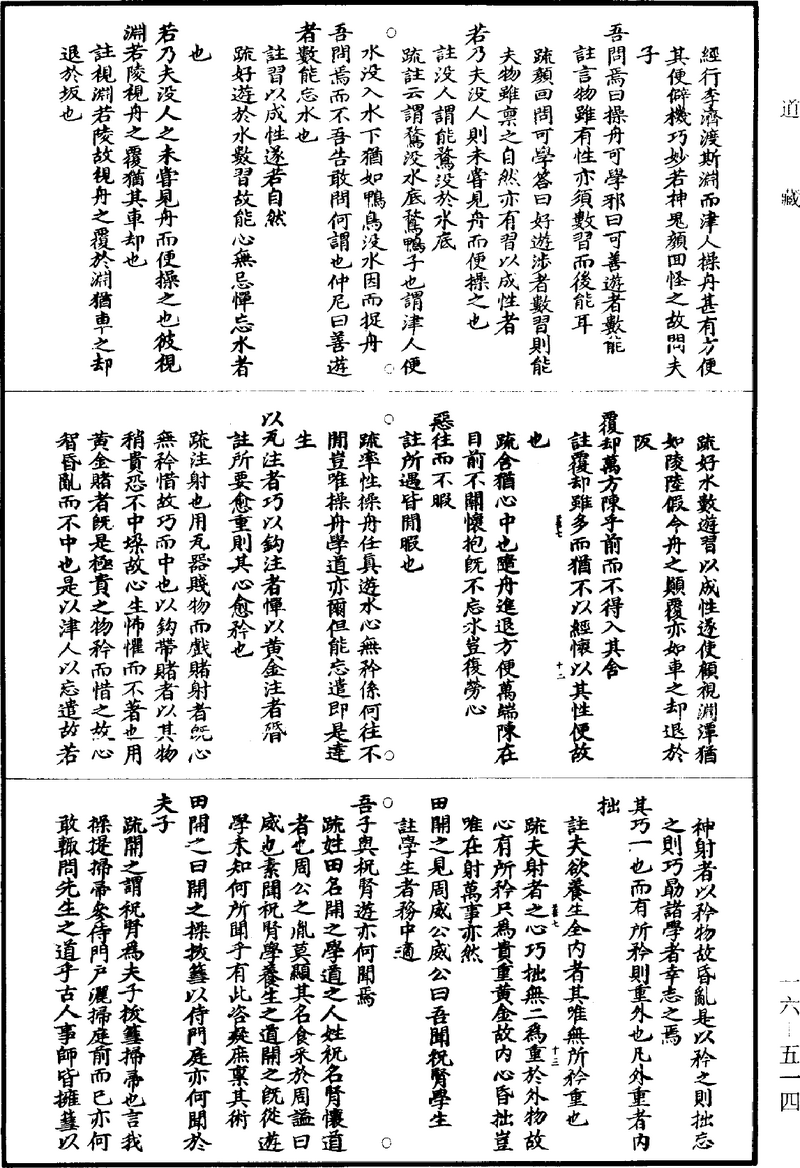 道藏
經行李濟渡斯淵而津人操舟甚有方便
其便僻機巧妙若神鬼顏回怪之故問夫
子
吾問焉曰操舟可學邪曰可善遊者數能
註言物雖有性亦須數習而後能耳
疏顏回問可學答曰好遊涉者數習則能
夫物雖稟之自然亦有習以成性者
若乃夫没人則未嘗見舟而便操之也
註没人謂能鶩没於水底
疏註云謂鶩没水底鶩鴨子也謂津人便
水没入水下猶如鴨鳥没水因而捉舟
吾問焉而不吾告敢問何謂也仲尼曰善遊
者數能忘水也
註習以成性遂若自然
疏好遊於水數習故能心無忌憚忘水者
也
若乃夫没人之未嘗見舟而便操之也彼視
淵若陵視舟之覆猶其車却也
註視淵若陵故視舟之覆於淵猶車之却
退於坂也
疏好水數遊習以成性遂使顧視淵潭猶
如陵陸假令舟之顛覆亦如車之却退於
阪
覆却萬方陳乎前而不得入其舍
註覆却雖多而猶不以經懷以其性便故
也
疏舍猶心中也隨舟進退方便萬端陳在
目前不關懷抱既不忘水豈復勞心
惡往而不暇
註所遇皆閒暇也
疏率性操舟任真遊水心無矜係何往不
閒豈唯操舟學道亦爾但能忘遣即是達
生
以瓦注者巧以鈎注者憚以黃金注者殙
註所要愈重則其心愈矜也
疏注射也用瓦器賤物而戲賭射者既心
無矜惜故巧而中也以鈎帶賭者以其物
稍貴恐不中垜故心生怖懼而不著也用
黃金賭者既是極貴之物矜而惜之故心
智昏亂而不中也是以津人以忘遣故若
神射者以矜物故昏亂是以矜之則拙忘
之則巧勗諸學者幸志之焉
其巧一也而有所矜則重外也凡外重者内
拙
註夫欲養生全内者其唯無所矜重也
疏夫射者之心巧拙無二為重於外物故
心有所矜只為貴重黃金故内心昏拙豈
唯在射萬事亦然
田開之見周威公威公曰吾聞祝腎學生
註學生者務中適
吾子與祝腎遊亦何聞焉
疏姓田名開之學道之人姓祝名腎懷道
者也周公之胤莫顯其名食采於周謚曰
威也素聞祝腎學養生之道開之既從遊
學未知何所聞乎有此咨疑庶稟其術
田開之曰開之操拔篲以侍門庭亦何聞於
夫子
疏開之謂祝腎為夫子拔篲掃帚也言我
操提掃帚參侍門戶灑掃庭前而已亦何
敢輒問先生之道乎古人事師皆擁篲以
一六—五一四